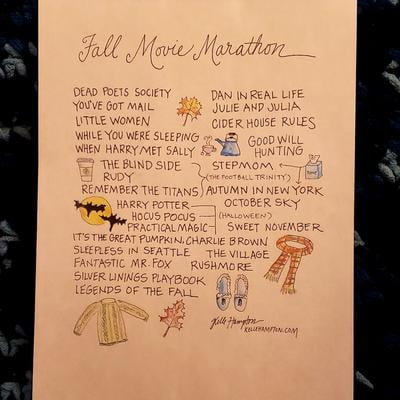 Fall Movie Marathon
DEAD POETS SOCIETY
YOU'VE GOT MAIL
LITTLE WOMEN
WHILE YOU WERE SLEEPING
WHEN HARRY MET SALLY
DAN IN REAL LIFE
JULIE AND JULIA
CIDER HOUSE RULES
GOOD WILL
HUNTING
THE BLIND SIDE
RUDY
REMEMBER THE TITANS
(THE FOOTBALL TRINITY)
STEPMOM
AUTUMN IN NEW YORK
OCTOBER SKY
HARRY POTTER
HOCUS POCUS
PRACTICAL MAGIC
(HALLOWEEN)
SWEET NOVEMBER
IT'S THE GREAT PUMPKIN, CHARLIE BROWN
SLEEPLESS IN SEATTLE THE VILLAGE
FANTASTIC MR. FOX RUSHMORE
SILVER LININGS PLAYBOOK
LEGENDS OF THE FALL
Kelle Hampton
KELLEHAMPTON.COM